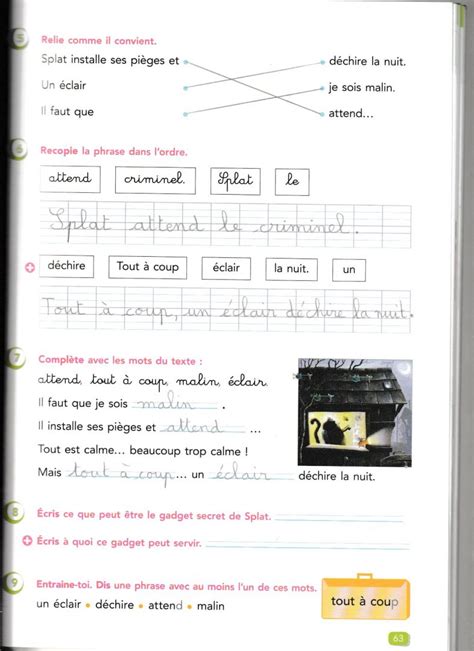 5 Relie comme il convient.
Splat installe ses pièges et déchire la nuit.
Un éclair je sois malin.
Il faut que attend...
6 Recopie la phrase dans l'ordre.
attend criminel. Splat le
Splat attend le criminel.
déchire Tout à coup éclair la nuit. un
Tout à coup, un éclair déchire la nuit.
7 Complète avec les mots du texte :
attend, tout à coup, malin, éclair.
Il faut que je sois malin .
Il installe ses pièges et attend ...
Tout est calme... beaucoup trop calme !
Mais tout à coup... un éclair déchire la nuit.
8 Écris ce que peut être le gadget secret de Splat.
Écris à quoi ce gadget peut servir.
9 Entraine-toi. Dis une phrase avec au moins l'un de ces mots.
un éclair • déchire • attend • malin
tout à coup
63